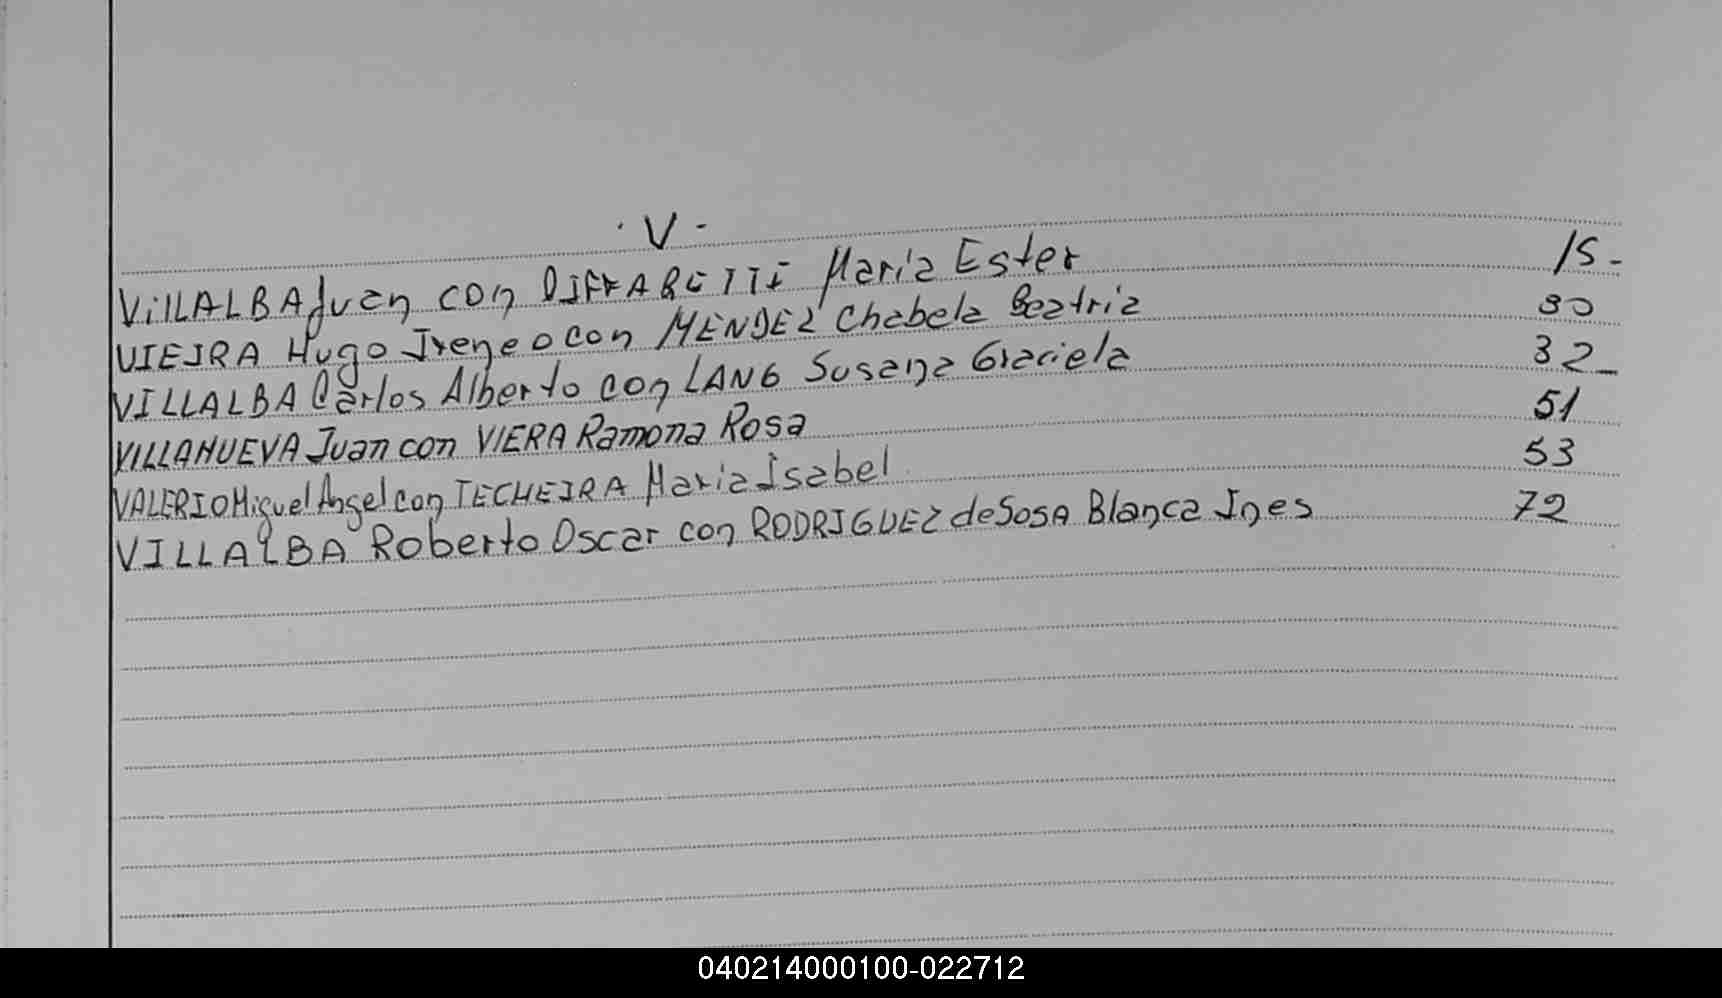 · V -
VillALBA Juan con DIFFARETTI Maria Ester 15-
VIEIRA Hugo Ireneo con MENDEZ Chabela Beatriz 30
VILLALBA Carlos Alberto con LANG Susana Graciela 32-
VILLANUEVA Juan con VIERA Ramona Rosa 51
VALERIO Miguel Angel con TECHEIRA Maria Isabel 53
VILLALBA Roberto Oscar con RODRIGUEZ de SOSA Blanca Ines 72
040214000100-022712